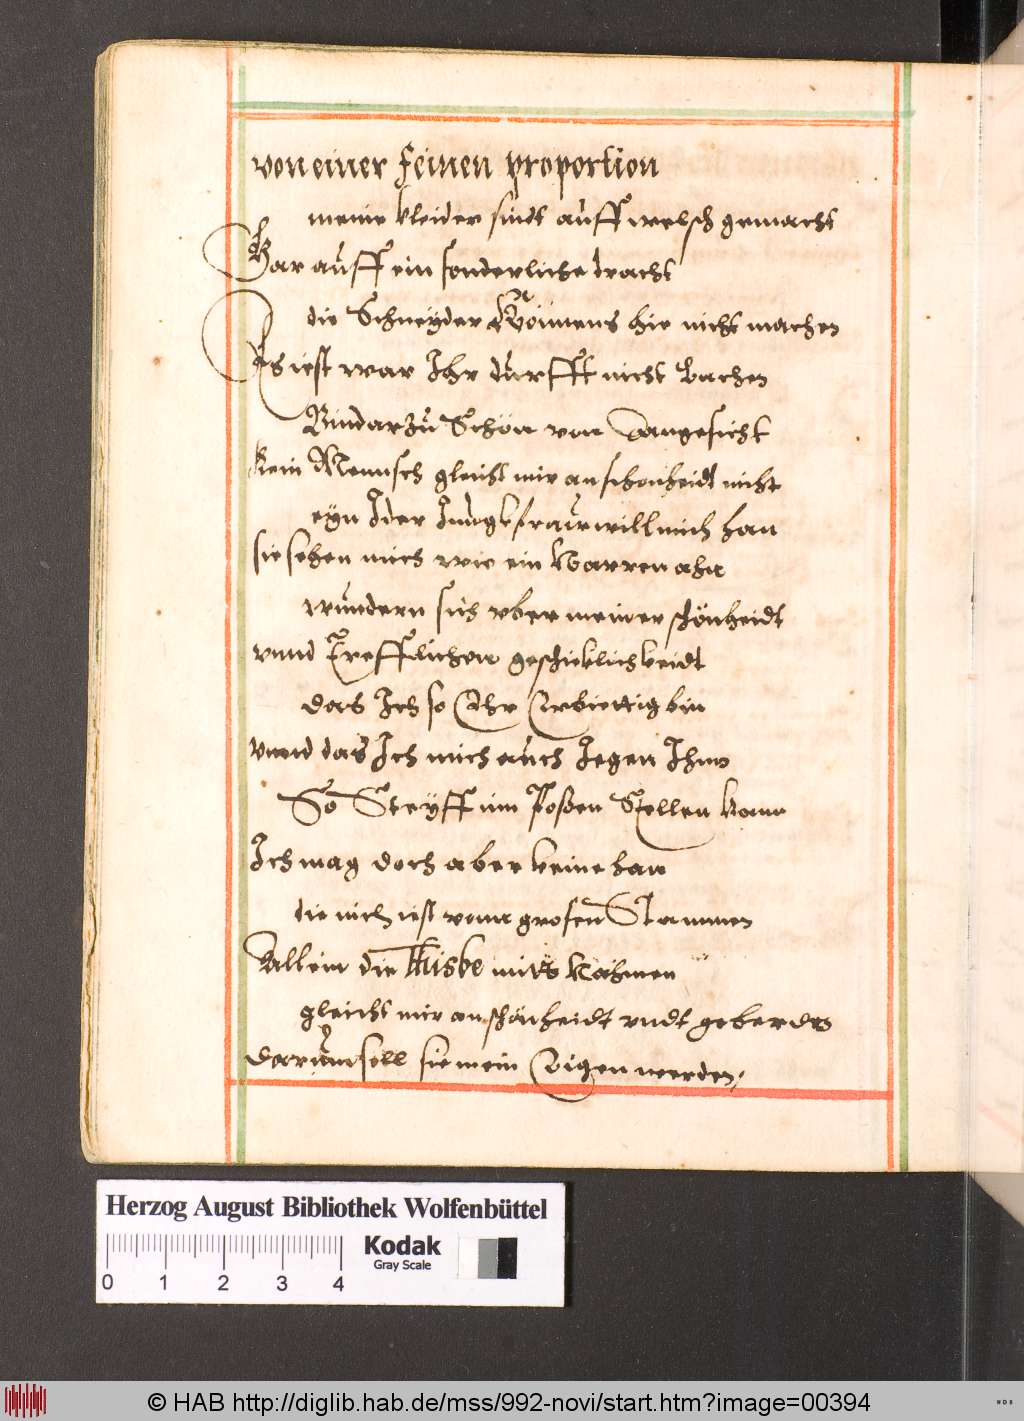 von einer feinen proportion
meine kleider sindt auff welsch gemacht
Gar auff ein sonderliche tracht
die Schneyder Könnens hie nicht machen
Es iest war Ihr dürfft nicht Lachen
Bin darzu Schön von Angesicht
kein Mennsch gleicht mir an schonheidt nicht
eyn Ider will mich han
sie sehen mich wie ein Narren ahn
wundern sich vber meiner schönheidt
vnnd Trefflichen geschicklichkeidt
das Ich so Ehr Erbiettig bin
vnnd das Ich mich auch Iegen Ihm
So Steyff im Poßen Stellen kann
Ich mag doch aber keine han
die nich iest vom grosen Stammen
Allein die mitt Nahmen
gleicht mir an schönheidt vndt geberden
darum soll sie mein Eigen werden,
Herzog August Bibliothek Wolfenbüttel
Kodak
Gray Scale
0 1 2 3 4
© HAB http://diglib.hab.de/mss/992-novi/start.htm?image=00394